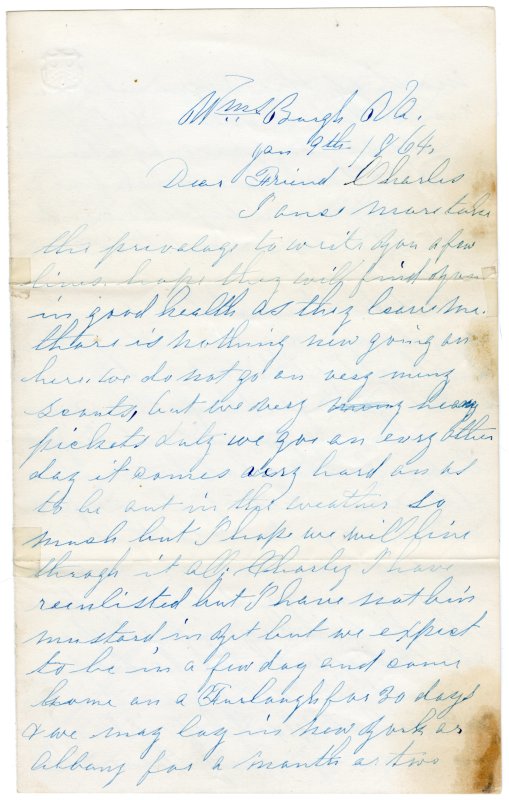 Wms Burgh Va.
Jan 9th 1864.
Dear Friend Charles
I onse more take
the prevalage to write you a few
lines. hope they will find you
in good health as they leave me.
thare is nothing new going on
here. we do not go on very meny
scouts, but we very meny heavy
pickets duty we goe on evry other
day it comes very hard on us
to be out in the weather so
mush but I hope we will live
throgh it all; Charley I have
reenlisted but I have not bin
mustard in yet but we expect
to be in a few day and come
home on a Furlough for 30 days
& we may lay in new york or
Albany for a month or two